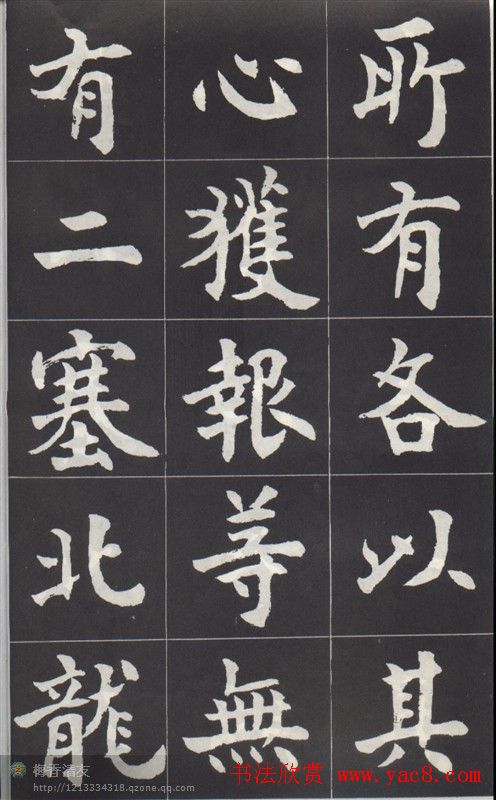 所有各以其
心獲報等無
有二塞北龍
梅香清友
http://1213334318.qzone.qq.com
书法欣赏
www.yac8.com